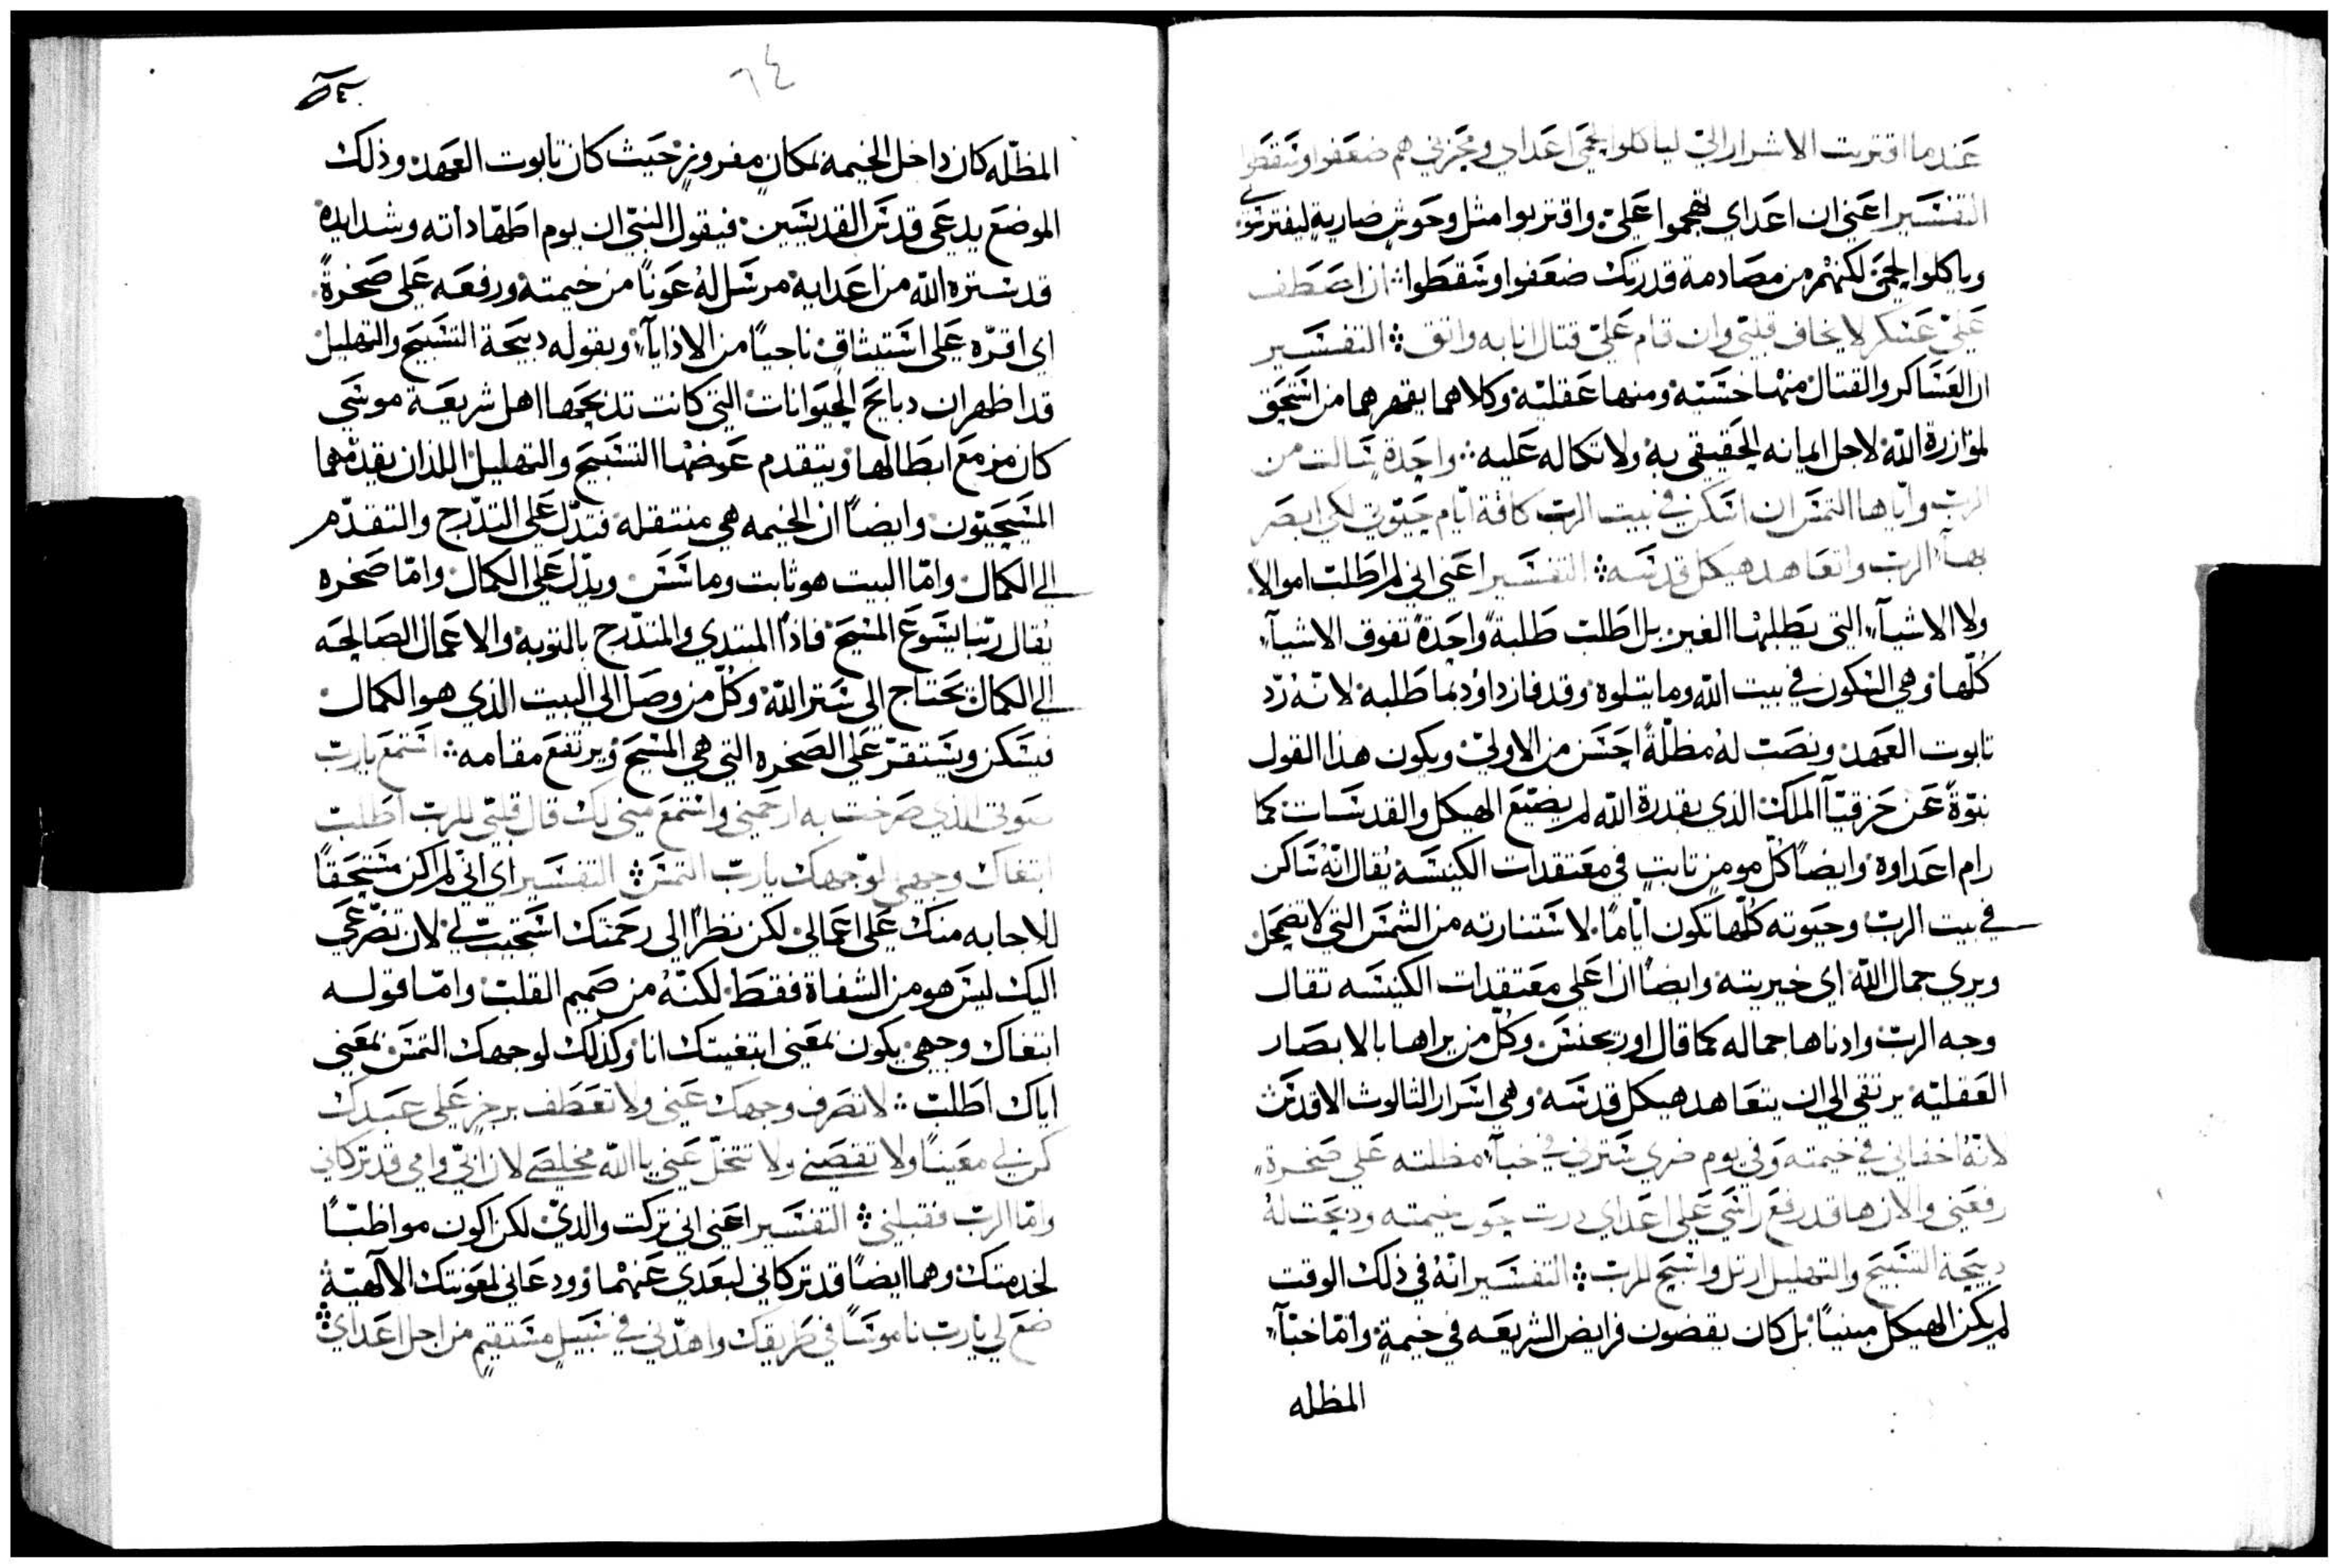 عندما اقتربت الاشرار الىّ لياكلوا لحمى اعداي ومحزنيّ هم ضعفوا وسقطوا
التفسير اعني ان اعداي هجموا علىّ واقتربوا مثل وحوش ضارية ليفترسوني
وياكلوا لحمى لكنهم من مصادمة قدرتك ضعفوا وسقطوا ان اصطف
علىّ عسكر لا يخاف قلبي وان قام علىّ قتال انا به واثق التفسير
ان العساكر والقتال منها حسّيه ومنها عقليّه وكلاهما يقهرهما من استحق
لموازرة اللّه لاجل ايمانه الحقيقي به ولاتكاله عليه واحدة سالت من
الرب واياها التمس ان اسكن في بيت الرب كافة ايام حيوتي لكي ابصر
بهآء الرب واتعاهد هيكل قدسه التفسير اعني اني لم اطلب اموالا
ولا الاشيآء التي يطلبها الغير بل اطلب طلبةً واحدةً تفوق الاشيآء
كُلّها وهي السكون في بيت اللّه وما يتلوه وقد فاز داوُد بما طلبه لانّه رُد
تابوت العهد ونصب لهُ مظلّةً احسن من الاولىّ ويكون هذا القول
نبوّةً عن حزقيّا الملك الذي بقدرة اللّه لم يضيّع الهيكل والقدسات كما
رام اعداوه وايضاً كُلّ مومنٍ ثابتٍ في معتقدات الكنيسه يُقال انّهُ ساكن
في بيت الربّ وحيوته كلّها تكون ايّاماً لاستنارته من الشمس التي لا تضمحل
ويري جمال اللّه اي خيريته وايضاً ان اعلى معتقدات الكنيسه تقال
وجه الربّ وادناها جماله كما قال اوريجنس وكلّ من يراها بالابصار
العقليّه يرتقي الى ان يتعاهد هيكل قدسه وهي اسرار الثالوث الاقدس
لانهُ اخفاني في خيمته وفي يوم ضري سترني في خبآء مظلته على صخرةٍ
رفعني والان ها قد رفع راسي على اعداي درت حول خيمته وذبحت لهُ
ذبيحة التسبيح والتهليل ارتل واسبح للرب التفسير انّهُ في ذلك الوقت
لم يكن الهيكل مبنيّاً بل كان يقضون فرايض الشريعه في خيمةٍ وامّا خبآء
المظله
٦٤
المظلّه كان داخل الخيمه بمكانٍ مفروزٍ حيث كان تابوت العهد وذلك
الموضع يدعى قدس القديسين فيقول النبي ان يوم اطهاداته وشدايده
قد ستره اللّه من اعدايه مرسل لهُ عوناً من خيمته ورفعه على صخرةً
اي اقرّه على استيثاق ناجياً من الاذايآء وبقوله ذبيحة التسبيح والتهليل
قد اظهر ان ذبايح الحيوانات التي كانت تذبحها اهل شريعة موسى
كان مزمع ابطالها ويتقدم عوضها التسبيح والتهليل اللذان يقدّمهما
المسيحيّون وايضاً ان الخيمه هي منتقله فتدلّ على التدرّج والتقدّم
الي الكمال وامّا البيت هو ثابت وماسس ويدّل على الكمال وامّا صخره
يُقال ربّنا يسوع المسيح فاذاً المبتدي والمتدّرج بالتوبه والاعمال الصالحه
الي الكمال يحتاج الى ستر اللّه وكلّ من وصل الى البيت الذي هو الكمال
فيسكن ويستقرّ على الصخره التي هي المسيح ويرتفع مقامه استمع يا ربّ
صوتي الذي صرخت به ارحمني واستمع مني لك قال قلبي للرب اطلب
ابتغاك وجهي لوجهك يا ربّ التمس التفسير اي اني لم اكن مستحقّاً
للاجابه منك على اعمالي لكن نظراً الى رحمتك استجيبّ لي لان تضرّعي
اليك ليس هو من الشفاة فقط لكنّهُ من صميم القلب وامّا قوله
ابتغاك وجهي يكون بمعني ابتغيتك انا وكذلك لوجهك التمس بمعني
اياك اطلب لا تصرف وجهك عني ولا تعطف برجزٍ على عبدك
كن لي معيناً ولا تقصني ولا تتخلّ عني يا اللّه مخلصي لان ابي وامي قد تركاني
وامّا الربّ فقبلني التفسير اعني اني تركت والديّ لكن اكون مواظبّاً
لخدمتك وهما ايضاً قد تركاني لبعدي عنهما وودعاني لمعونتك الآلهيّة
ضع لي يا رب ناموسًا في طريقك واهدني في سبيلٍ مستقيمٍ من اجل اعداي